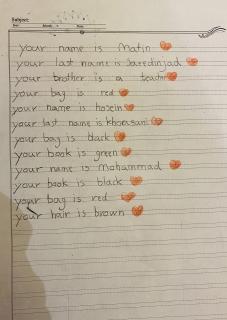 Subject:
your name is Matin
your last name is Saeedinjad
your brother is a teacher
your bag is red
your name is hosein
your last name is khorasani
your bag is black
your book is green
your name is Mohammad
your book is black
your bag is red
your hair is brown